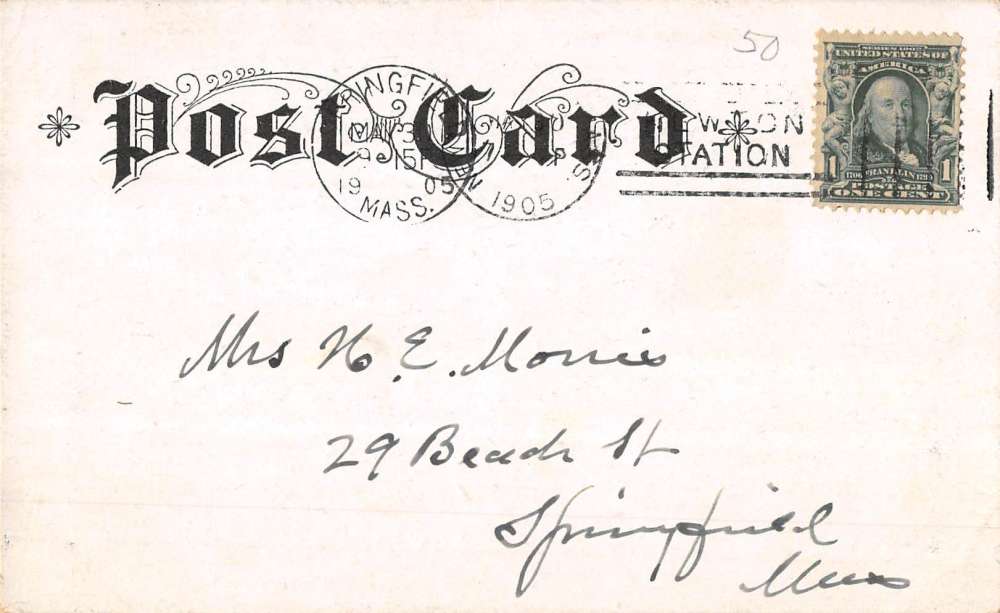 50
Post Card
SPRINGFIELD
MAR 30
1905
MASS.
1905
STATION
SERIES 1902
UNITED STATES OF
AMERICA
1706 FRANKLIN 1790
POSTAGE
1 ONE CENT 1
Mrs H. E. Morris
29 Beach St
Springfield
Mass